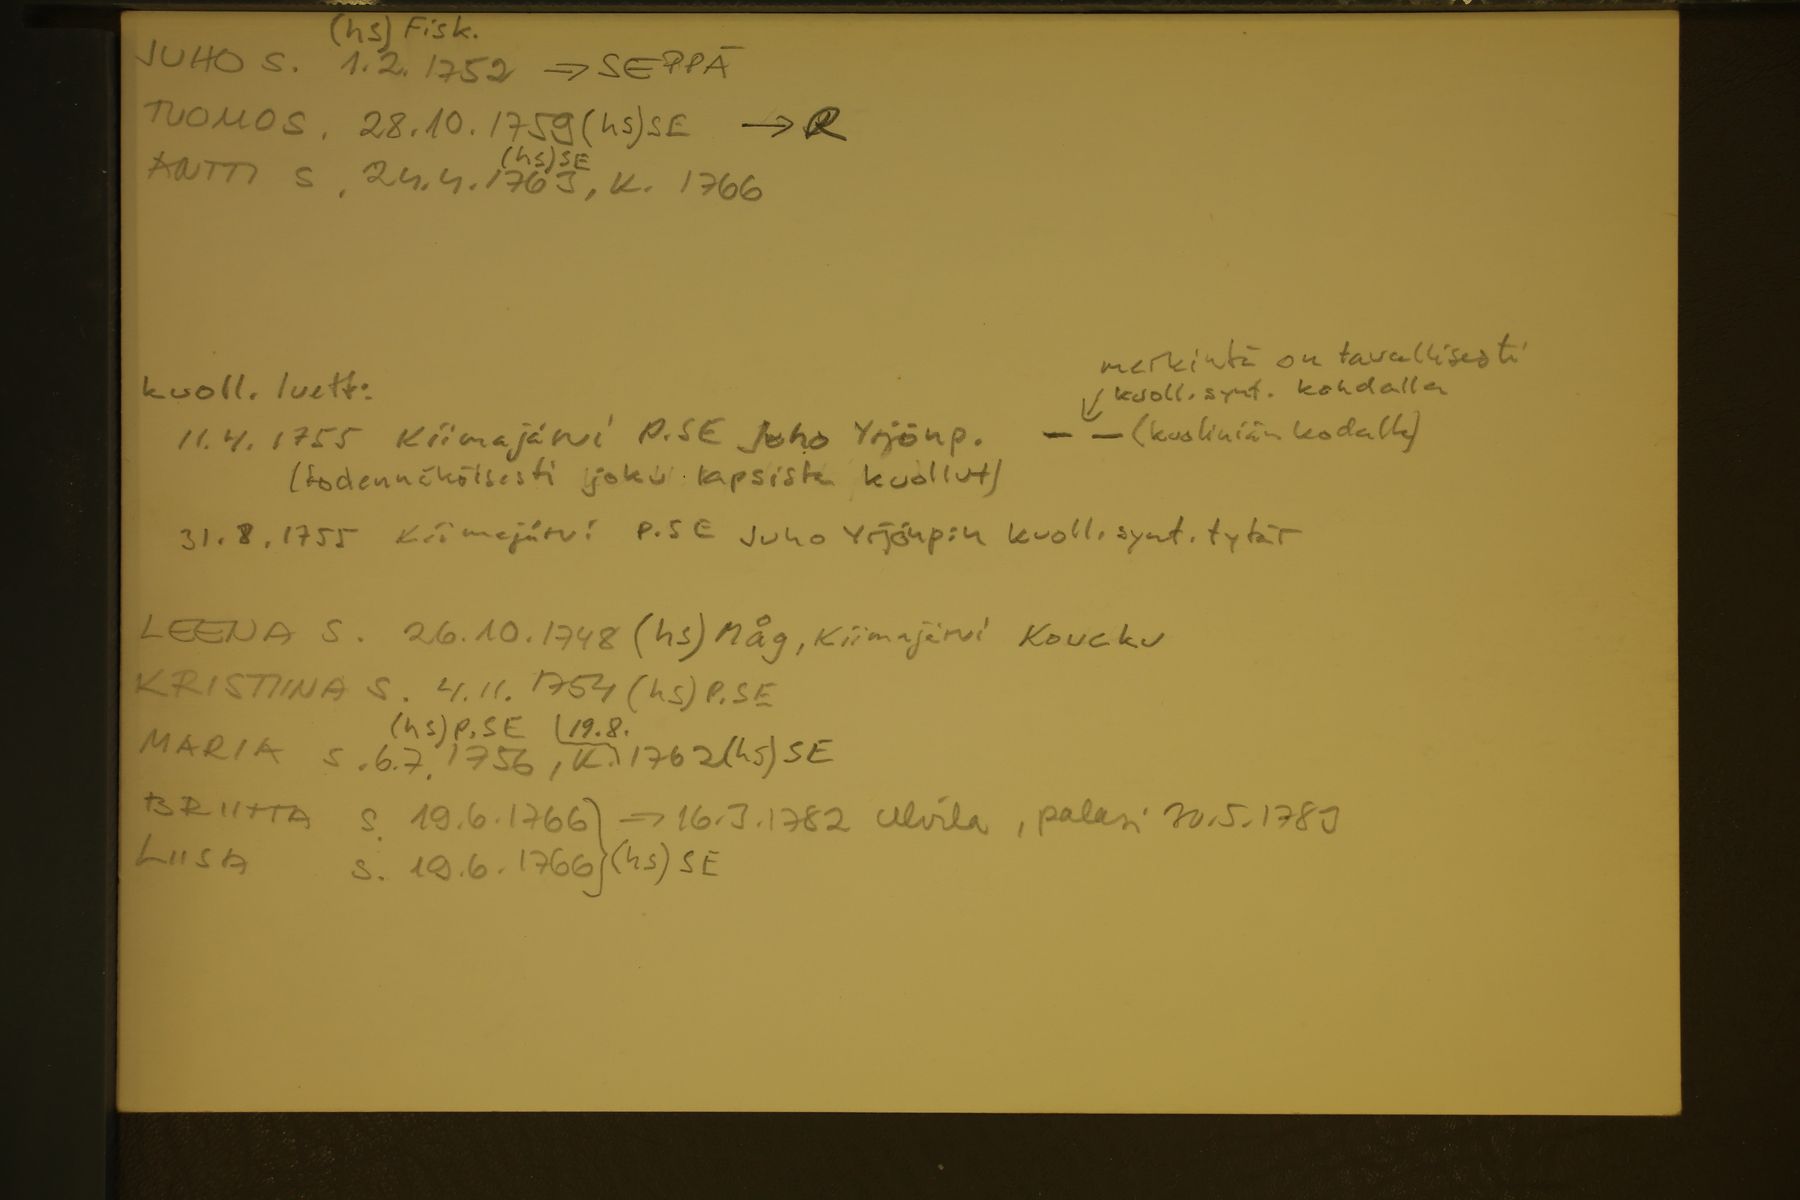 (hs) Fisk.
JUHO S. 1.2. 1752 => SEPPÄ
TUOMO S. 28.10.1759 (hs) SE → R
(hs) SE
ANTTI S. 24.4.1763, K. 1766
merkintä on tavallisesti
kuoll. luett: ↓ kuoll. synt. kohdalla
11.4. 1755 Kiimajärvi P.SE Juho Yrjönp. – – (kuoliniän kodalla)
(todennäköisesti joku lapsista kuollut)
31.8.1755 Kiimajärvi P.SE Juho Yrjönp:n kuoll. synt. tytär
LEENA S. 26.10.1748 (hs) Måg, Kiimajärvi Koucku
KRISTIINA S. 4.11. 1754 (hs) P.SE
(hs) P.SE 19.8.
MARIA S. 6.7. 1756, K. 1762 (hs) SE
BRIITTA S. 19.6.1766 } => 16.3.1782 Ulvila, palasi 30.5.1783
LIISA S. 19.6.1766 } (hs) SE